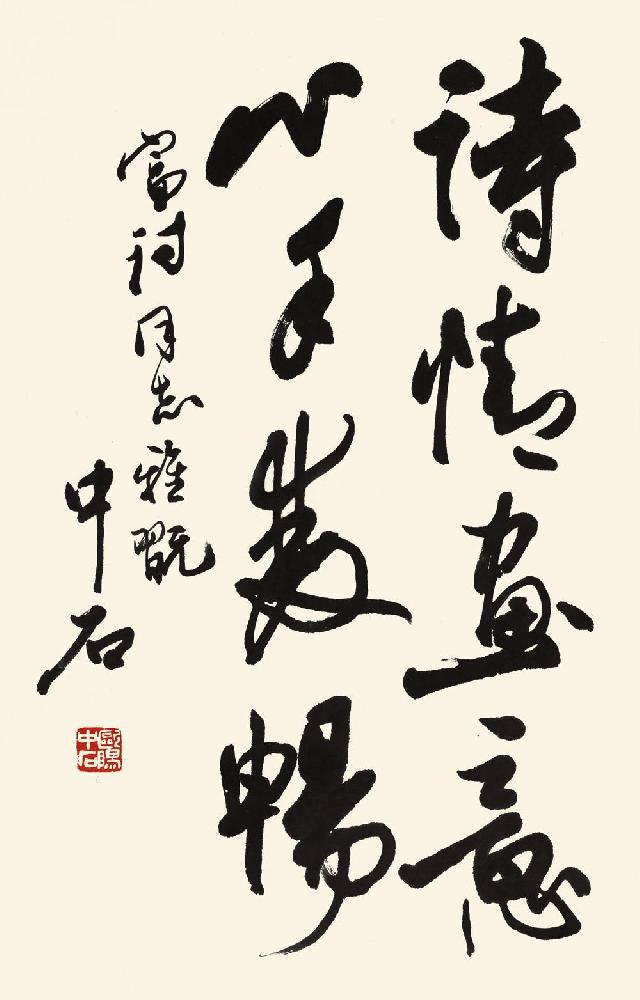 詩情畫意
心手雙暢
富詩同志雅翫
中石
歐陽中石